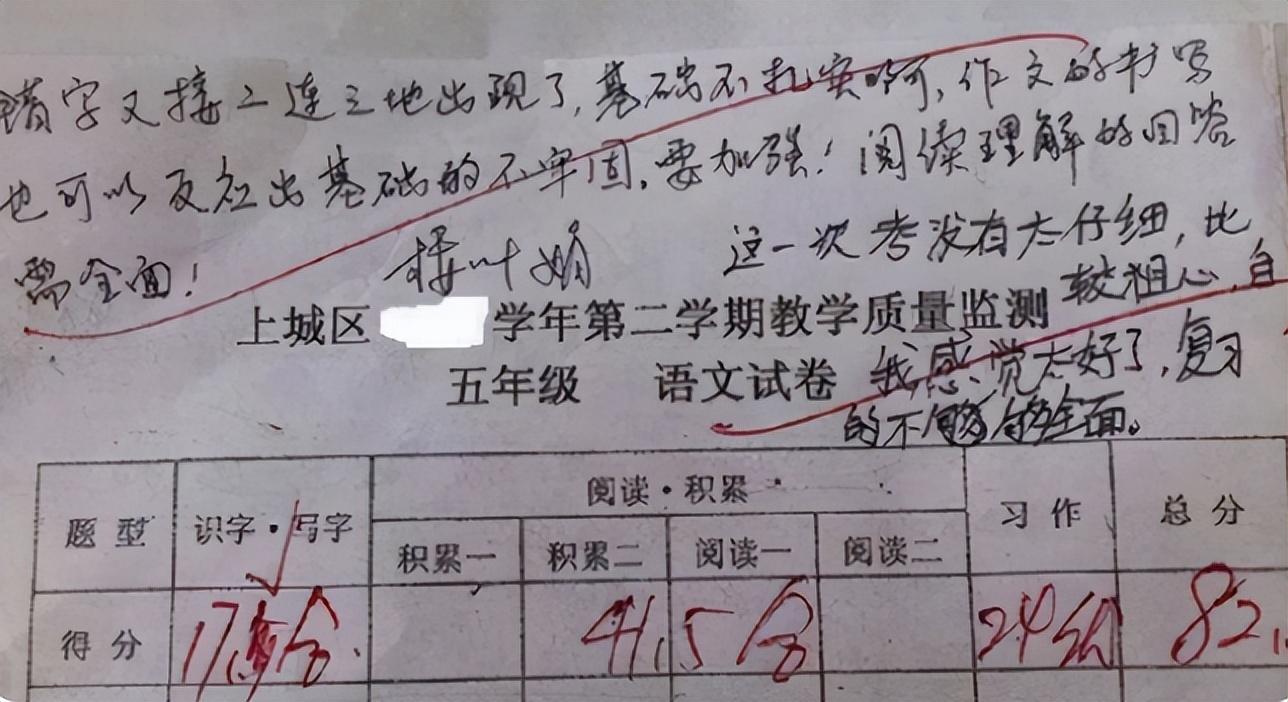 错字又接二连三地出现了,基础不扎实啊,作文的书写
也可以反应出基础的不牢固,要加强!阅读理解的回答
需全面!
这一次考没有太仔细,比
较粗心,自
上城区 学年第二学期教学质量监测
五年级 语文试卷
我感觉太好了,复习
的不够全面。
题型 识字·写字 阅读·积累 习作 总分
积累一 积累二 阅读一 阅读二
得分 17.5分 41.5分 24 82.